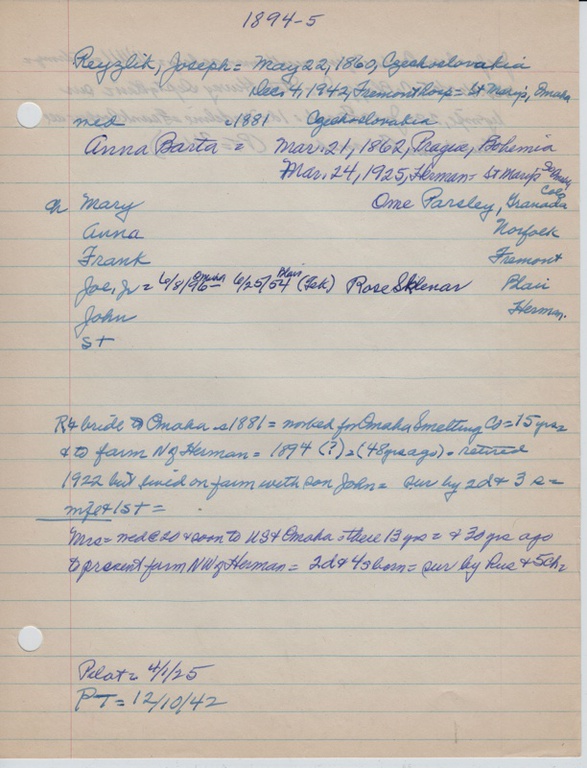 1894-5
Reyzlik, Joseph = May 22, 1860, Czechoslovakia
Dec. 4, 1942, Fremont Hosp = St Marys, Omaha
med = 1881 Czechoslovakia
Anna Barta = Mar. 21, 1862, Prague, Bohemia
Mar. 24, 1925, Herman = St Marys
ch Mary Ome Parsley, Granada Colo
Anna Norfolk
Frank Fremont
Joe, Jr = 6/8/96 Omaha 6/25/54 Blair (Tek) Rose Sklenar Blair
John Herman.
st
R & bride to Omaha = 1881 = worked for Omaha Smelting Co = 15 yrs =
& to farm N of Herman = 1894 (?) = (48 yrs ago) = retired
1922 but lived on farm with son John = sur by 2d & 3 s =
wife & 1 st =
Mrs = med @ 20 & soon to US & Omaha = there 13 yrs = & 30 yrs ago
to present farm NW of Herman = 2d & 4s born = sur by Hus & 5ch =
Pilot = 4/1/25
PT = 12/10/42